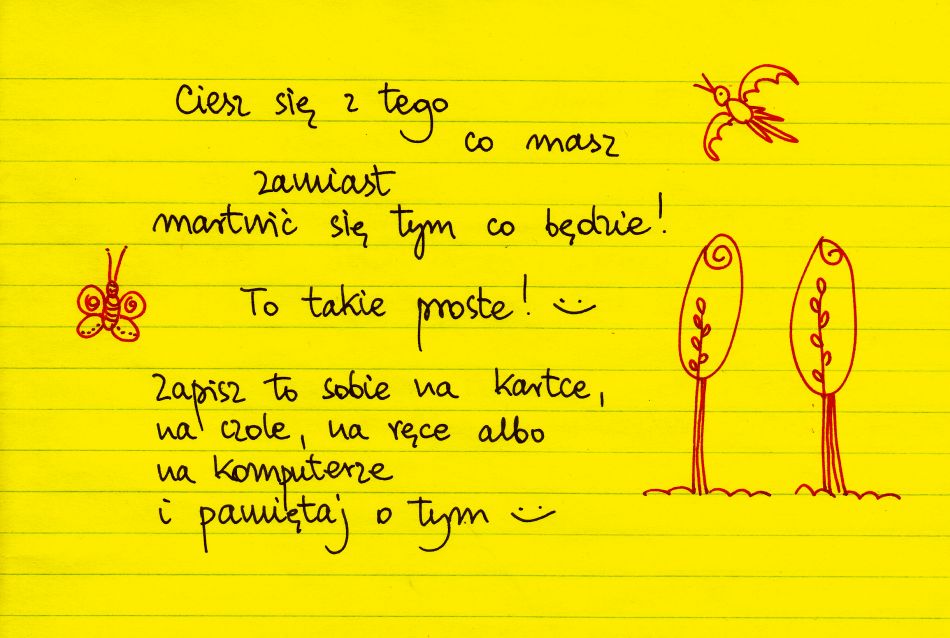 Ciesz się z tego
co masz
zamiast
martwić się tym co będzie!
To takie proste! :)
Zapisz to sobie na kartce,
na czole, na ręce albo
na komputerze
i pamiętaj o tym :)